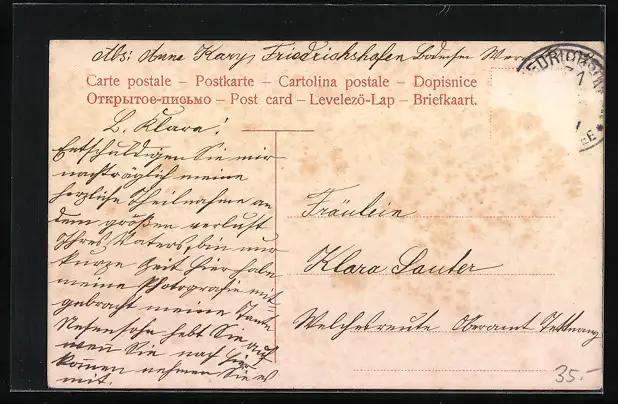 Abs: Anna Kary, Friedrichshafen Bodensee
Carte postale – Postkarte – Cartolina postale – Dopisnice
Открытое-письмо – Post card – Levelező-Lap – Briefkaart.
L. Klara!
Entschuldigen Sie mir
nachträglich meine
herzliche Theilnahme an
dem großen verlust
Ihres Vaters, bin nur
kurze Zeit hier habe
meine Photografie mit-
gebracht meine Tante
hebt Sie auf
wen Sie nach hier
kommen nehmen Sie es
mit.
Fräulein
Klara Sauter
Welchesreute Oberamt Tettnang
35.-